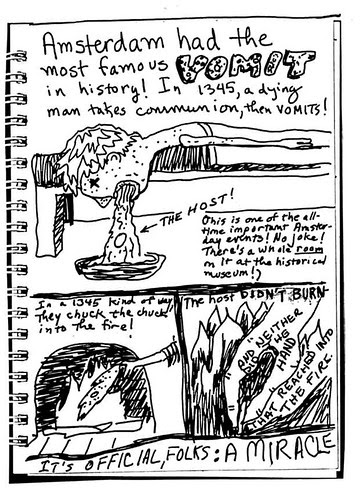 Amsterdam had the
most famous VOMIT
in history! In 1345, a dying
man takes communion, then VOMITS!
THE HOST!
(This is one of the all-
time important Amster-
day events! No joke!
There's a whole room
on it at the historical
museum!)
In a 1345 kind of way
They chuck the chuck
into the fire!
The host DIDN'T BURN-
"AND NEITHER
DOES THE HAND
THAT REACHED INTO
THE FIRE.
IT'S OFFICIAL, FOLKS: A MIRACLE